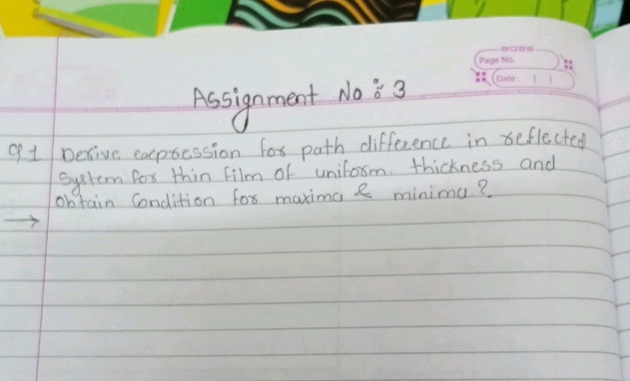 Page No.
Date :
Assignment No : 3
Q.1 Derive expression for path difference in reflected
System for thin film of uniform thickness and
obtain Condition for maxima & minima ?
→